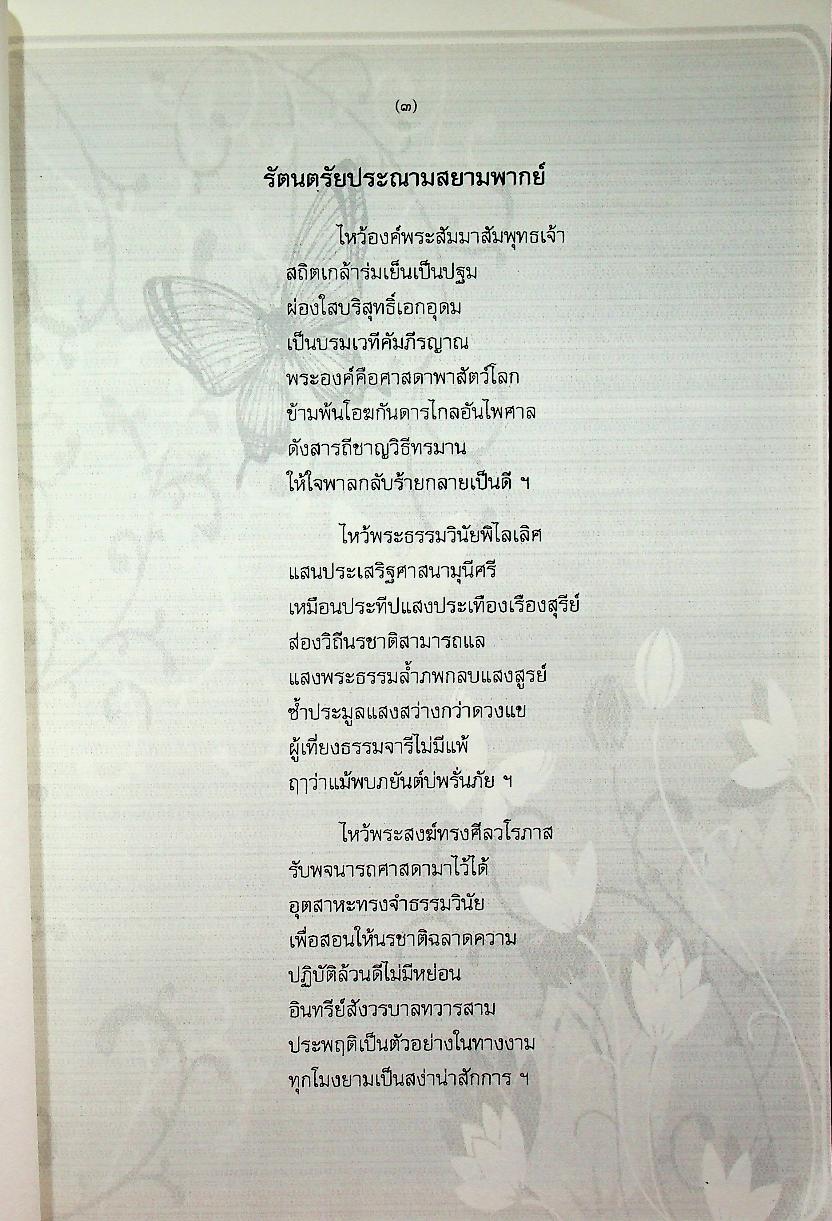 (๓)
รัตนตรัยประณามสยามพากย์
ไหว้องค์พระสัมมาสัมพุทธเจ้า
สถิตเกล้าร่มเย็นเป็นปฐม
ผ่องใสบริสุทธิ์เอกอุดม
เป็นบรมเวทีคัมภีรญาณ
พระองค์คือศาสดาพาสัตว์โลก
ข้ามพ้นโอฆกันดารไกลอันไพศาล
ดังสารถีชาญวิธีทรมาน
ให้ใจพาลกลับร้ายกลายเป็นดี ฯ
ไหว้พระธรรมวินัยพิไลเลิศ
แสนประเสริฐศาสนามุนีศรี
เหมือนประทีปแสงประเทืองเรืองสุรีย์
ส่องวิถีนรชาติสามารถแล
แสงพระธรรมล้ำภพกลบแสงสูรย์
ซ้ำประมูลแสงสว่างกว่าดวงแข
ผู้เที่ยงธรรมจารีไม่มีแพ้
ฤๅว่าแม้พบภยันต์บ่พรั่นภัย ฯ
ไหว้พระสงฆ์ทรงศีลวโรภาส
รับพจนารถศาสดามาไว้ได้
อุตสาหะทรงจำธรรมวินัย
เพื่อสอนให้นรชาติฉลาดความ
ปฏิบัติล้วนดีไม่มีหย่อน
อินทรีย์สังวรบาลทวารสาม
ประพฤติเป็นตัวอย่างในทางงาม
ทุกโมงยามเป็นสง่าน่าสักการ ฯ